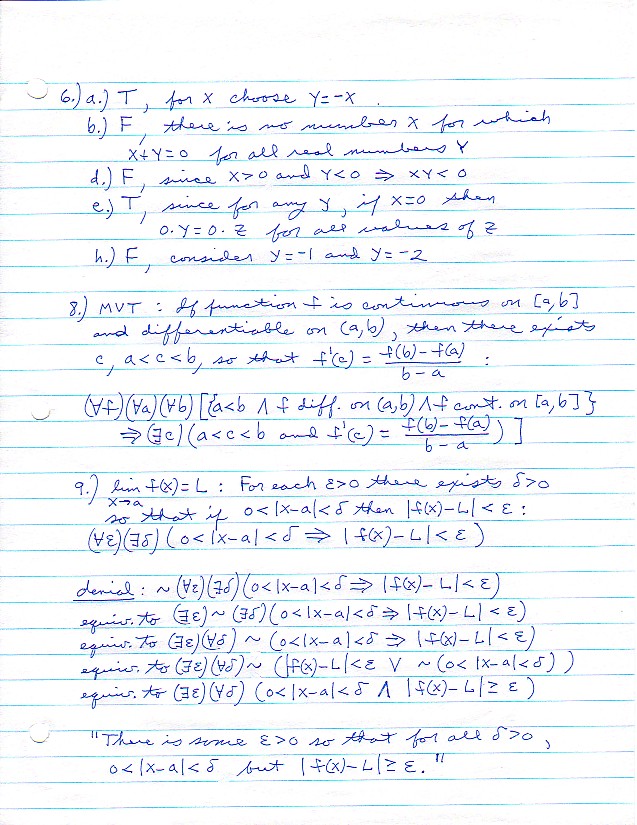 6.) a.) T, for x choose y=-x.
b.) F, there is no number x for which
x+y=0 for all real numbers y
d.) F, since x>0 and y<0 ⇒ xy<0
e.) T, since for any y, if x=0 then
0·y=0·z for all values of z
h.) F, consider y=-1 and y=-2
8.) MVT : If function f is continuous on [a,b]
and differentiable on (a,b), then there exists
c, a<c<b, so that f'(c) = f(b)-f(a) / b-a :
(∀f)(∀a)(∀b)[{a<b ∧ f diff. on (a,b) ∧ f cont. on [a,b]}
⇒ (∃c)(a<c<b and f'(c) = f(b)-f(a) / b-a )]
9.) lim x→a f(x)=L : For each ε>0 there exists δ>0
so that if 0<|x-a|<δ then |f(x)-L|<ε :
(∀ε)(∃δ)(0<|x-a|<δ ⇒ |f(x)-L|<ε)
denial : ~(∀ε)(∃δ)(0<|x-a|<δ ⇒ |f(x)-L|<ε)
equiv. to (∃ε)~(∃δ)(0<|x-a|<δ ⇒ |f(x)-L|<ε)
equiv. to (∃ε)(∀δ)~(0<|x-a|<δ ⇒ |f(x)-L|<ε)
equiv. to (∃ε)(∀δ)~(|f(x)-L|<ε ∨ ~(0<|x-a|<δ))
equiv. to (∃ε)(∀δ)(0<|x-a|<δ ∧ |f(x)-L|≥ε)
"There is some ε>0 so that for all δ>0,
0<|x-a|<δ but |f(x)-L|≥ε."